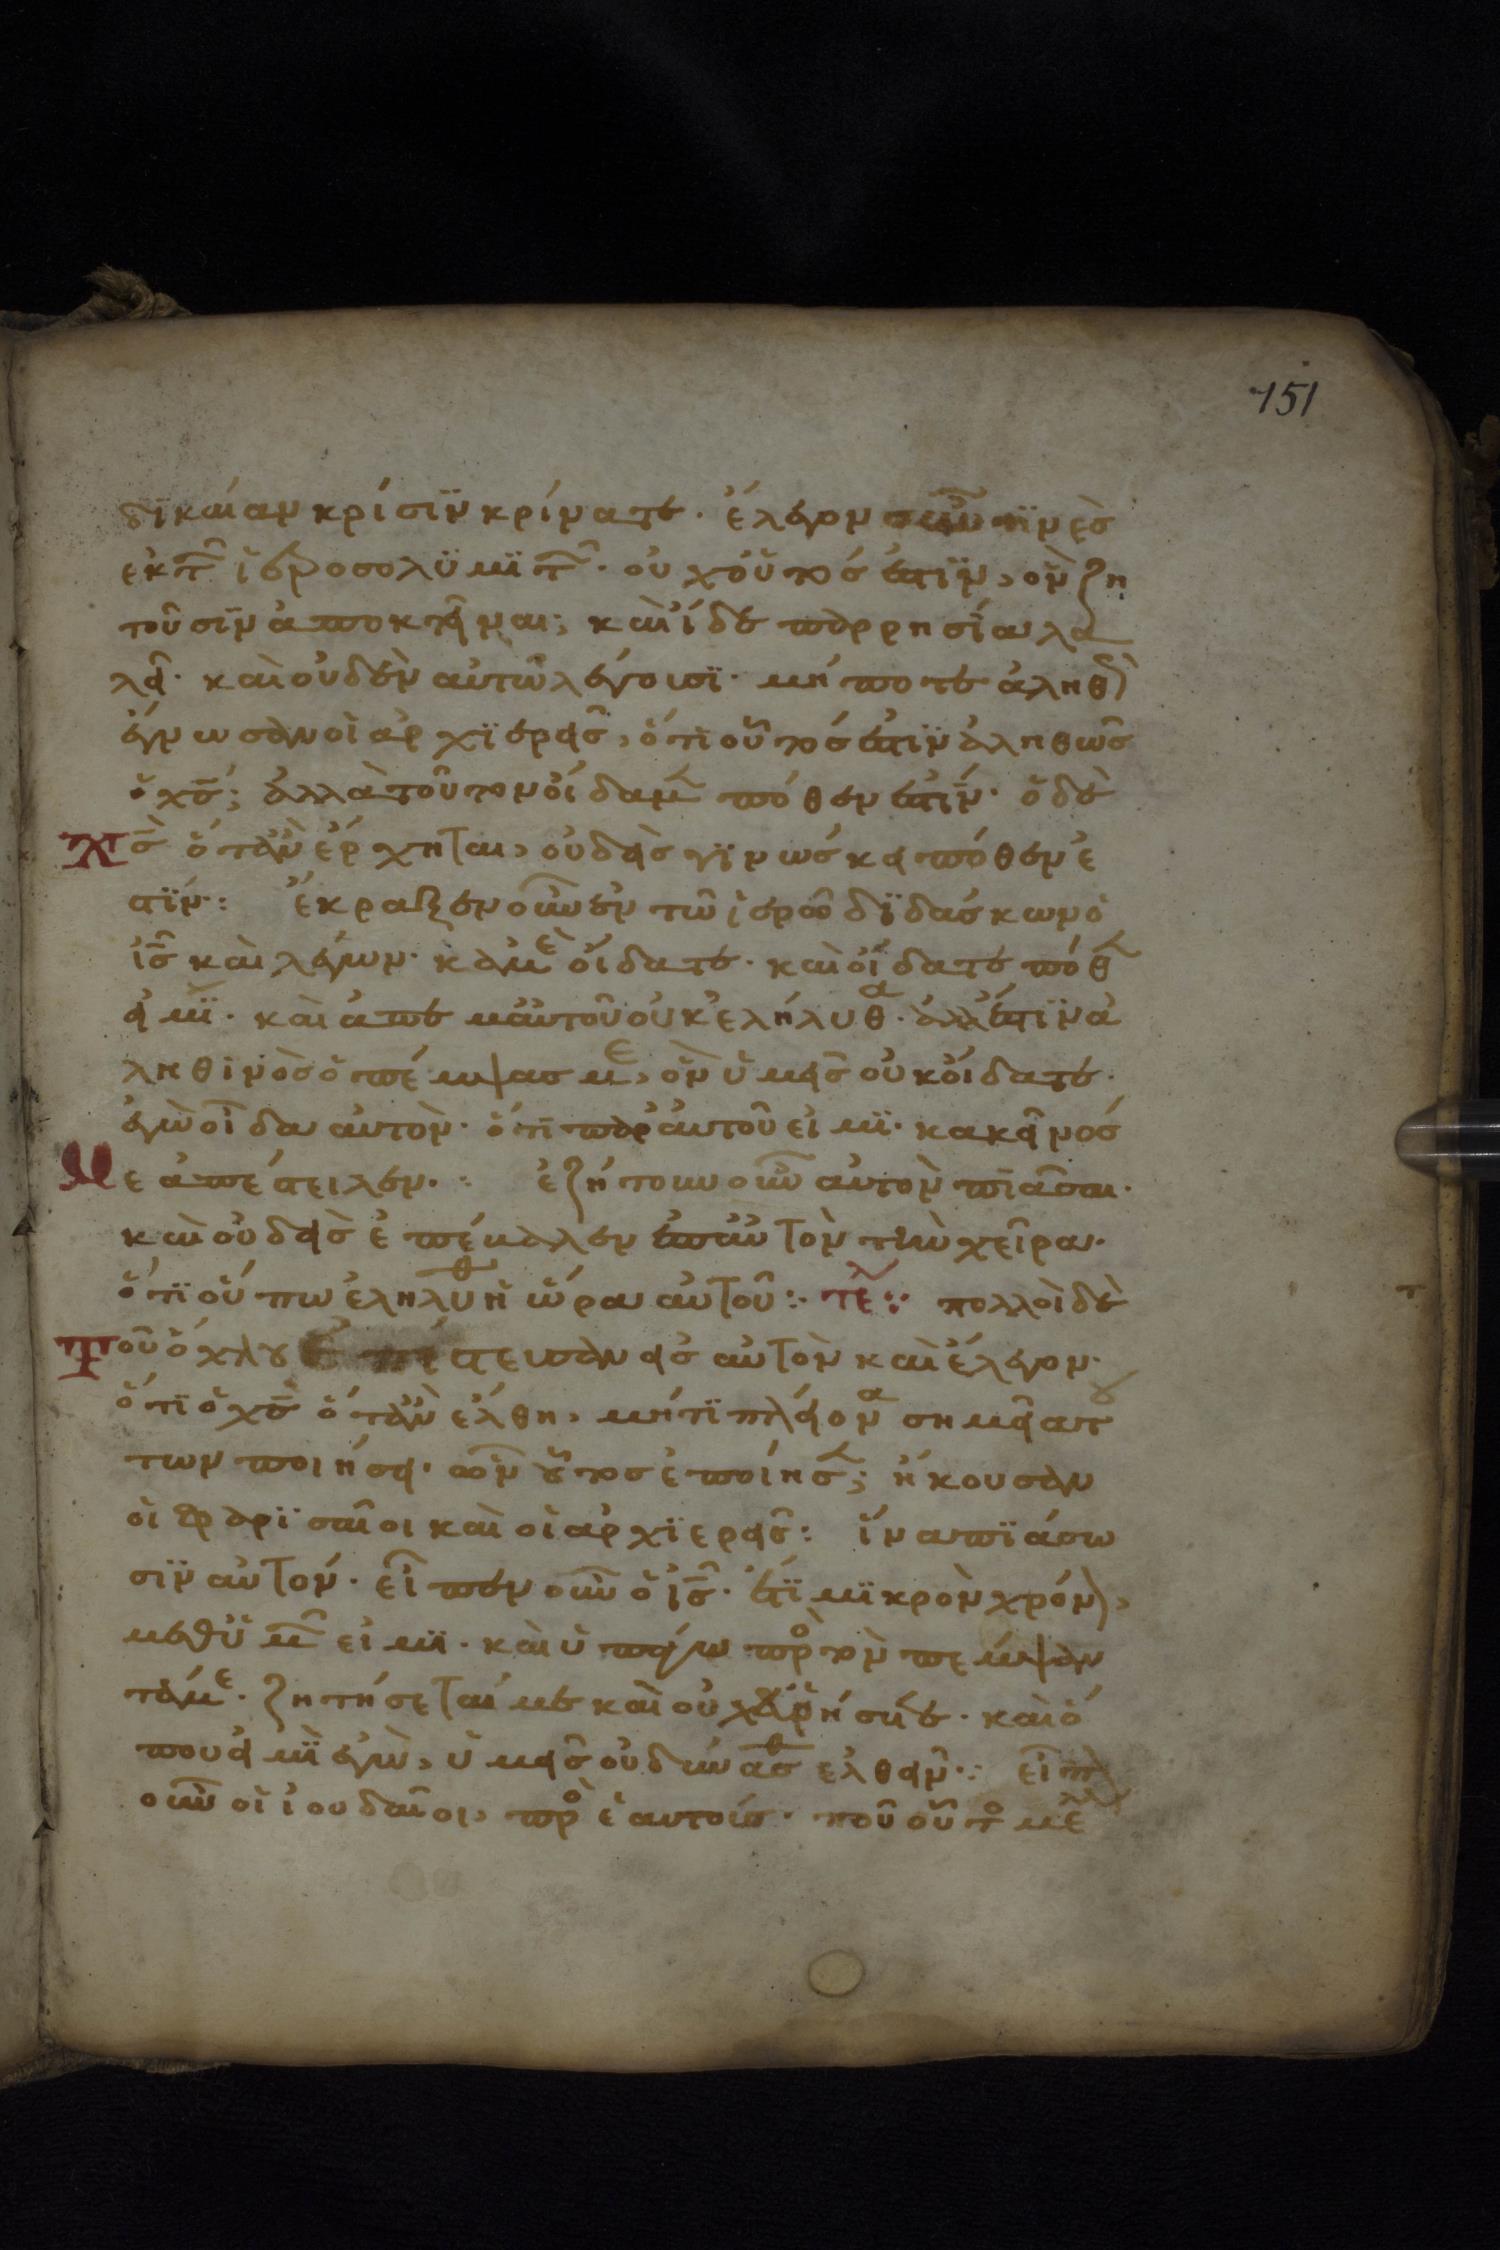 151
δϊκαίαν κρίσϊν κρίνατε· ἔλεγον οὖν τϊνὲς
ἐκ τῶν ἱεροσολϋμϊτῶν· οὐχ οὗτός ἐστϊν, ὃν ζη
τοῦσϊν ἀποκτεῖναι; καὶ ἴδε παρρησία λα
λεῖ· καὶ οὐδὲν αὐτῶ λέγουσϊ· μήποτε ἀληθῶς
ἔγνωσαν οἱ ἀρχϊερεῖς, ὅτϊ οὗτός ἐστϊν ἀληθῶς
ὁ χς; ἀλλὰ τοῦτον οἴδαμεν πόθεν ἐστίν· ὁ δὲ
χς ὅταν ἔρχηται, οὐδεὶς γϊνώσκει πόθεν ἐ
στϊν·: ἔκραξεν οὖν ἐν τῶ ἱερῶ δϊδάσκων ὁ
ις καὶ λέγων· κἀμὲ οἴδατε· καὶ οἴδατε πόθεν
εἰμϊ· καὶ ἀπ' ἐμαυτοῦ οὐκ ἐλήλυθα· ἀλλ' ἔστϊν ἀ
ληθϊνὸς ὁ πέμψας με, ὃν ὑμεῖς οὐκ οἴδατε·
ἐγὼ οἶδα αὐτὸν· ὅτϊ παρ' αὐτοῦ εἰμϊ· κακεῖνός
με ἀπέστειλεν·: ἐζήτουν οὖν αὐτὸν πϊᾶσαι·
καὶ οὐδεὶς ἐπέβαλεν ἐπ' αὐτὸν τὴν χεῖρα·
ὅτϊ οὔπω ἐληλύθη ἡ ὥρα αὐτοῦ:· τε:· πολλοὶ δὲ
τοῦ ὄχλου ἐπίστευσαν εἰς αὐτὸν καὶ ἔλεγον·
ὅτϊ ὁ χς ὅταν ἔλθη, μήτϊ πλείονα σημεῖα τού
των ποιήσει· ὧν οὗτος ἐποίησεν; ἤκουσαν
οἱ φαρϊσαῖοι καὶ οἱ ἀρχϊερεῖς: ἵνα πϊάσω
σϊν αὐτόν· εἶπεν οὖν ὁ ις· ἔτϊ μϊκρὸν χρόνον,
μεθ' ὑμῶν εἰμϊ· καὶ ὑπάγω πρὸς τὸν πέμψαν
τά με· ζητήσεταί με καὶ οὐχ εὑρήσητε· καὶ ὅ
που εἰμϊ ἐγὼ, ὑμεῖς οὐ δύνασθε ἐλθεῖν·: εἶπον
οὖν οἱ ἰουδαῖοι, πρὸς ἑαυτούς· ποῦ οὗτος μέλλει